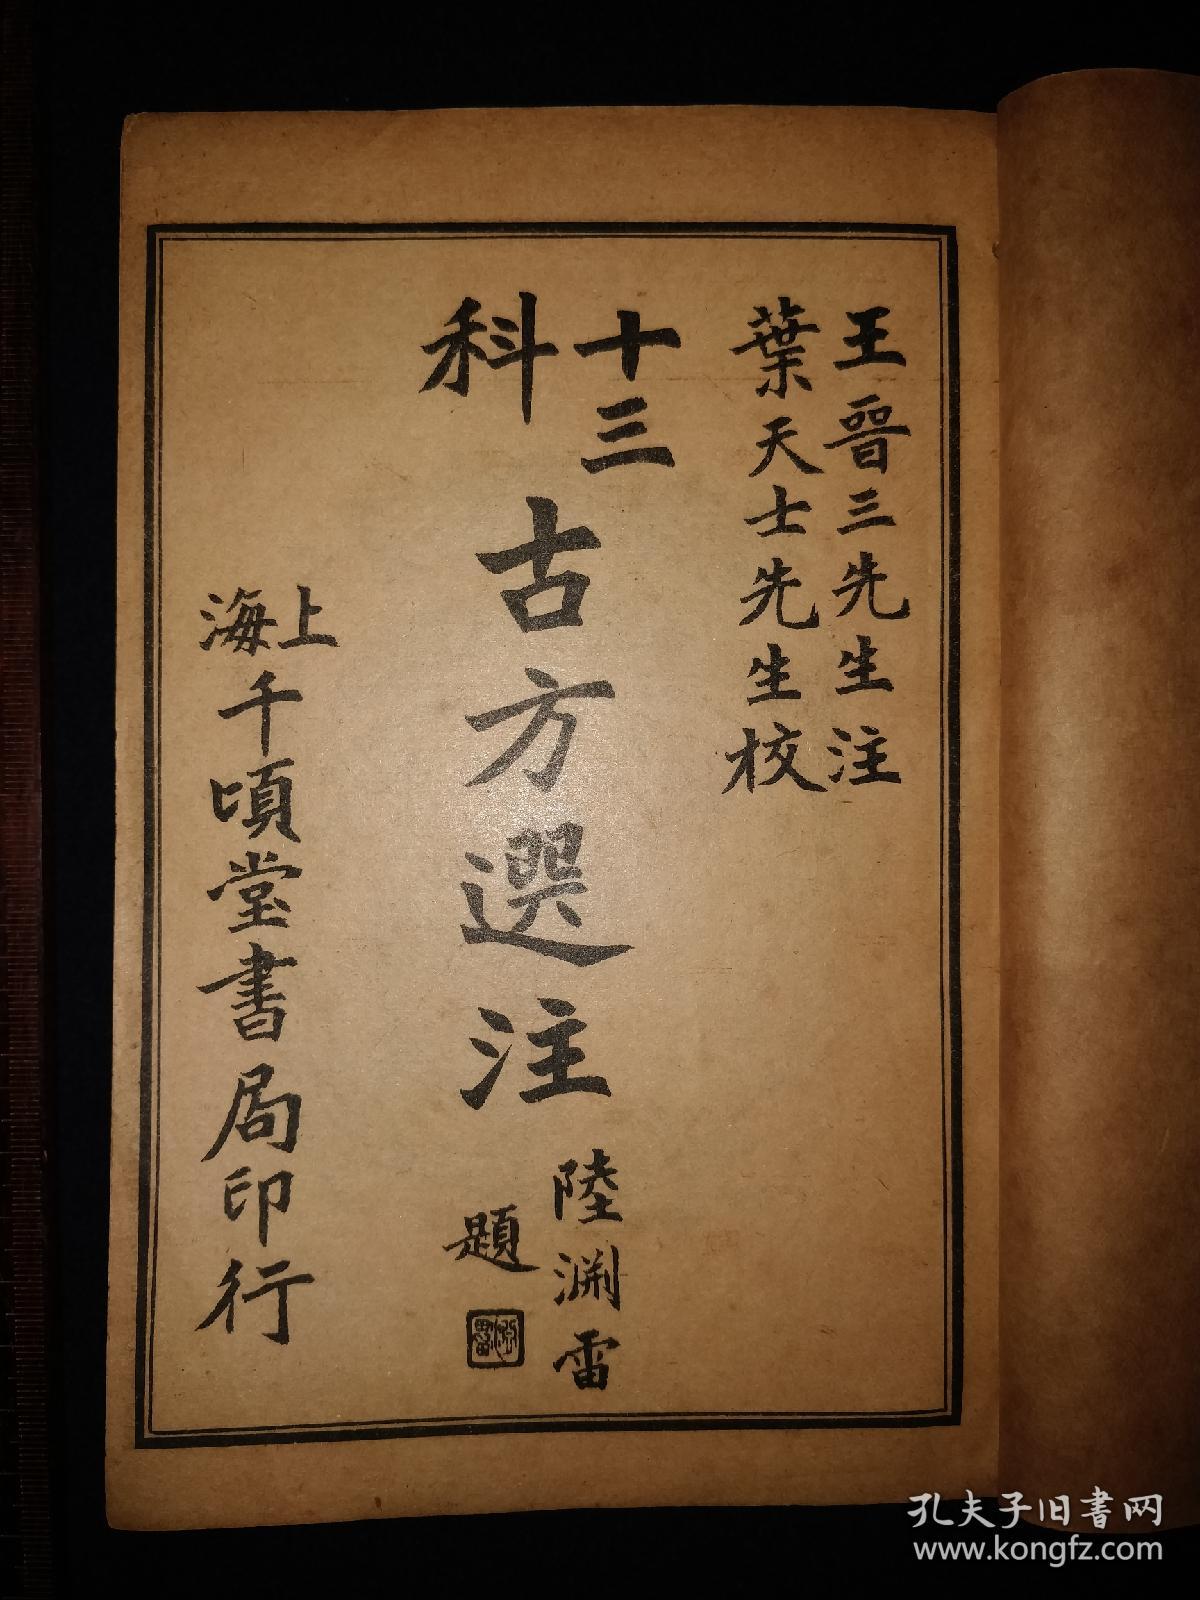 王晉三先生注
葉天士先生校
十三科古方選注
陸淵雷題
上海千頃堂書局印行
孔夫子旧书网
www.kongfz.com